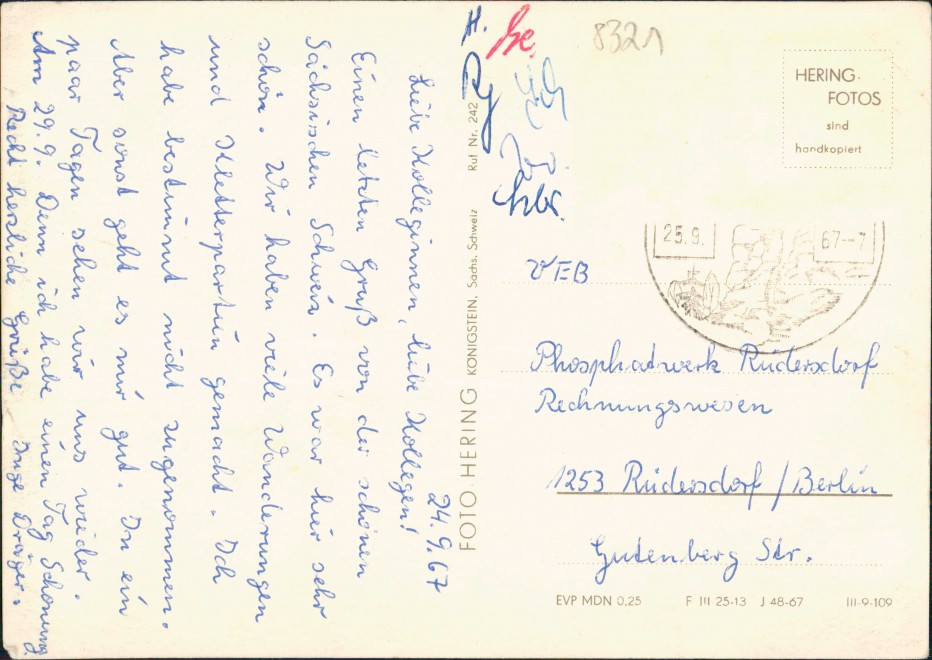 24.9.67
Liebe Kolleginnen, liebe Kollegen!
Einen letzten Gruß von der schönen
Sächsischen Schweiz. Es war hier sehr
schön. Wir haben viele Wanderungen
und Kletterpartien gemacht. Ich
habe bestimmt nicht zugenommen.
Aber sonst geht es mir gut. In ein
paar Tagen sehen wir uns wieder.
Am 29.9. Denn ich habe einen Tag Schonung
Recht herzliche Grüße Inge Dräger.
FOTO-HERING KÖNIGSTEIN, Sächs. Schweiz Ruf Nr. 242
H.
Ry
hbr.
8321
HERING-
FOTOS
sind
handkopiert
25.9. 67--7
VEB
Phosphatwerk Rüdersdorf
Rechnungswesen
1253 Rüdersdorf / Berlin
Gutenberg Str.
EVP MDN 0,25 F III 25-13 J 48-67 III-9-109